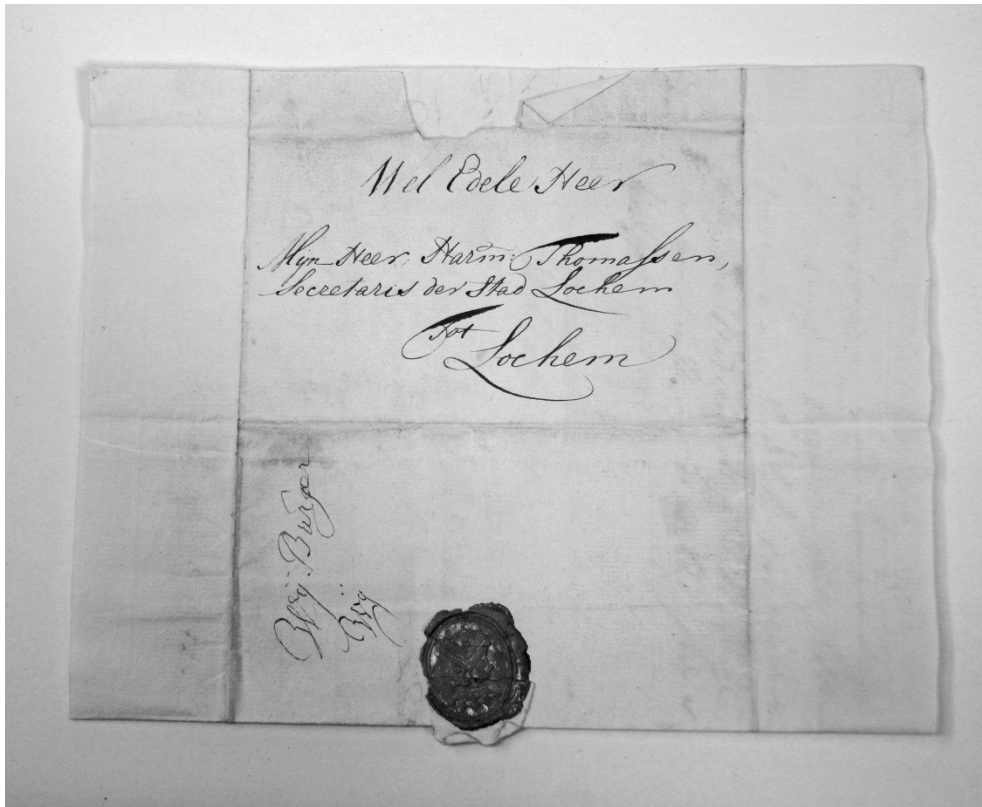 Wel Edele Heer
Mijn Heer: Harm: Thomassen,
Secretaris der Stad Lochem
Tot
Lochem
Burger